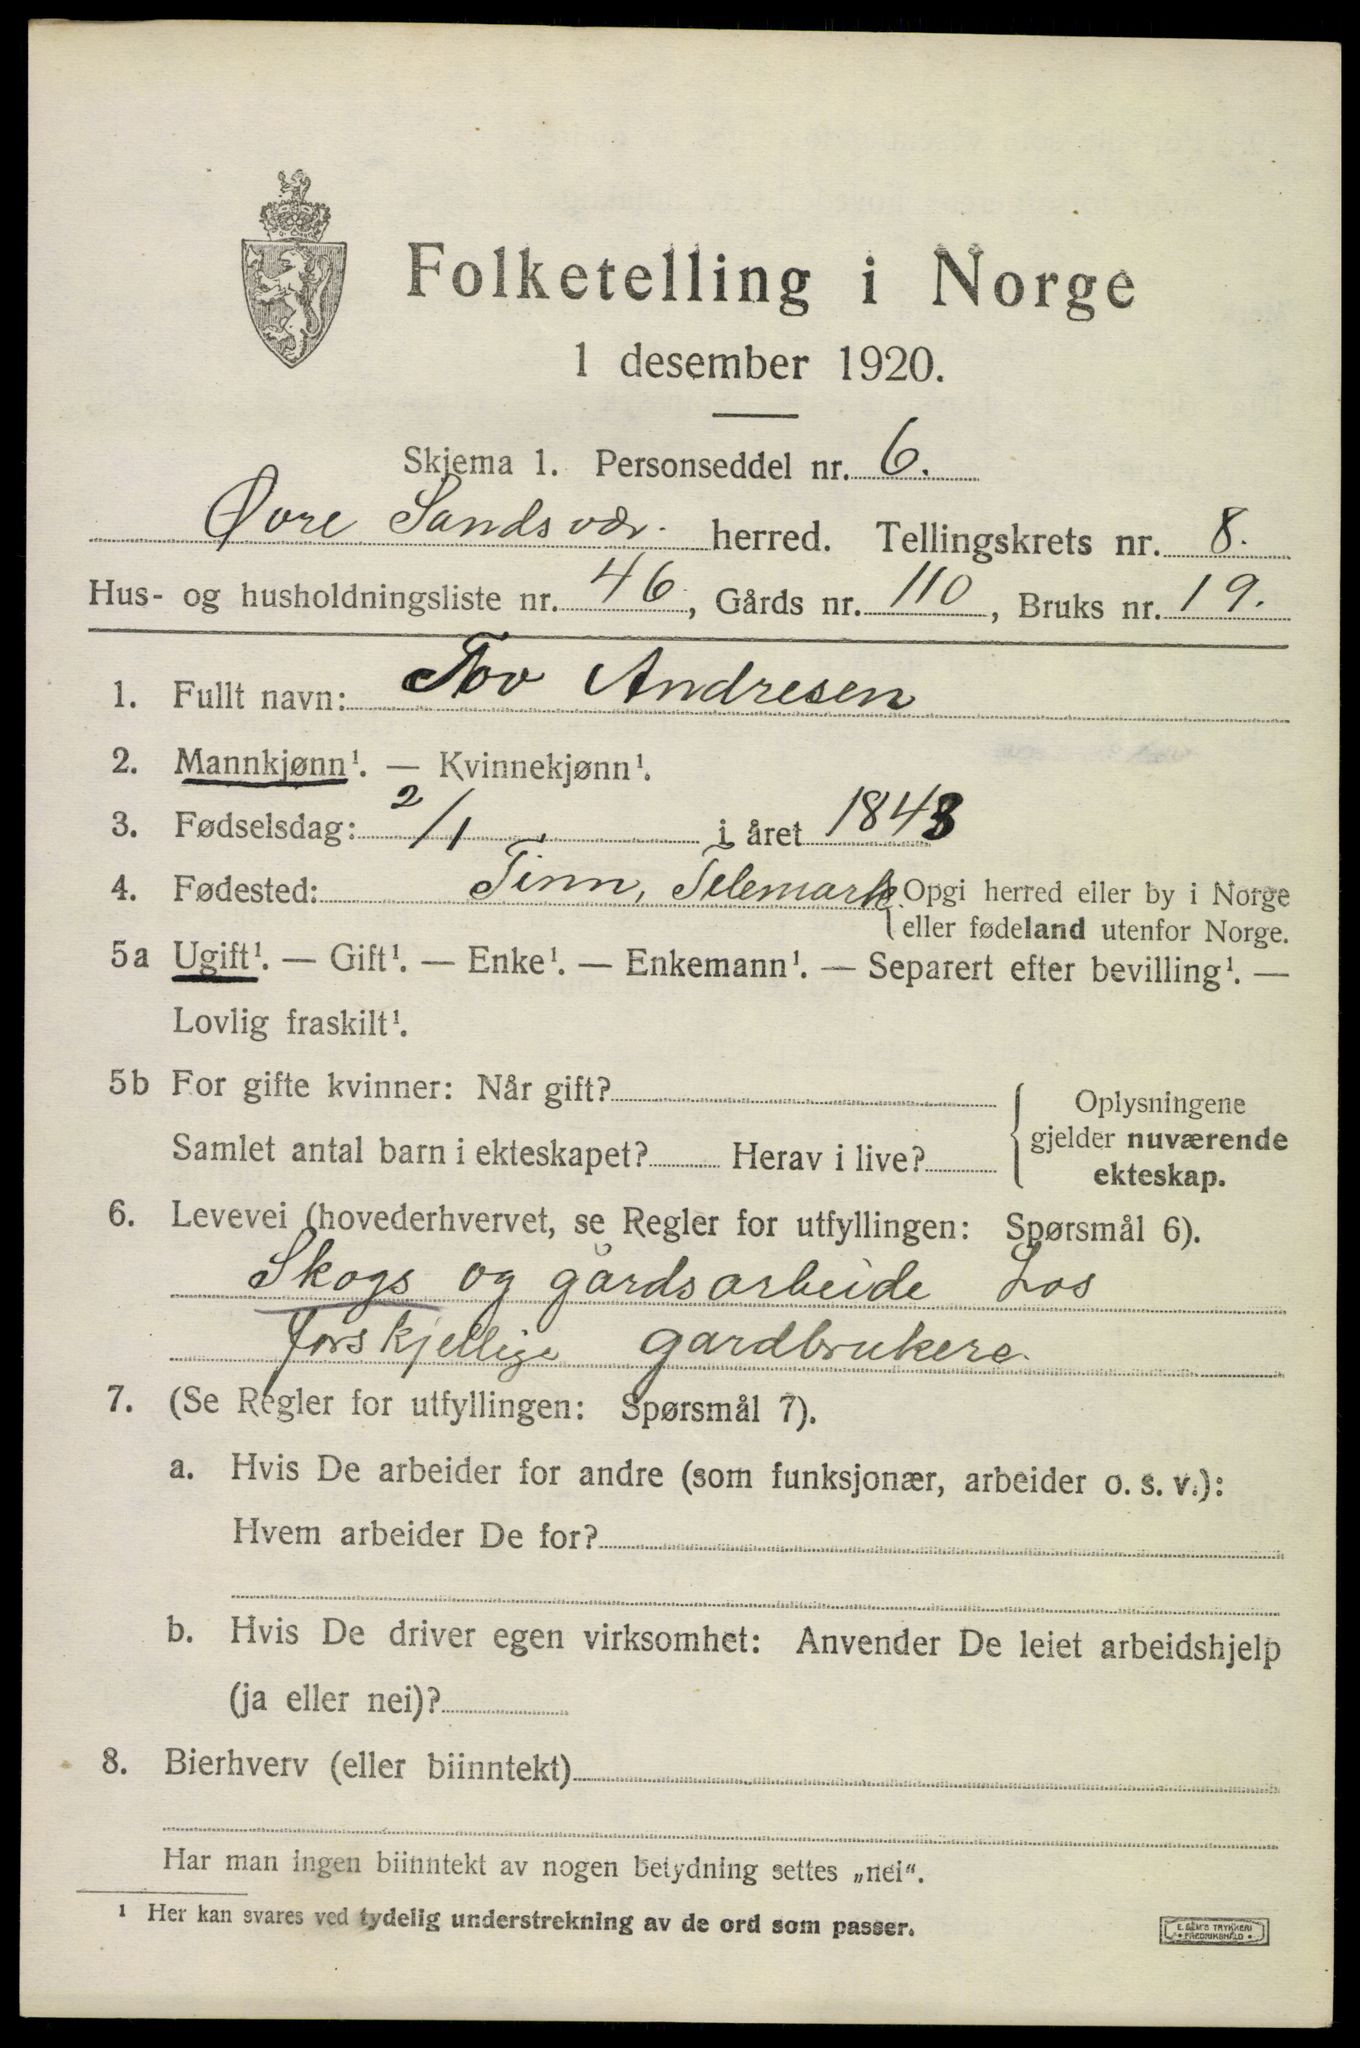 Folketelling i Norge
1 desember 1920.
Skjema 1. Personseddel nr. 6.
Øvre Sandsvær. herred. Tellingskrets nr. 8.
Hus- og husholdningsliste nr. 46., Gårds nr. 110, Bruks nr. 19.
1. Fullt navn: Tov Andresen
2. Mannkjønn¹. — Kvinnekjønn¹.
3. Fødselsdag: 2/1 i året 1843
4. Fødested: Tinn, Telemark. Opgi herred eller by i Norge
eller fødeland utenfor Norge.
5a Ugift¹. — Gift¹. — Enke¹. — Enkemann¹. — Separert efter bevilling¹. —
Lovlig fraskilt¹.
5b For gifte kvinner: Når gift?
Samlet antal barn i ekteskapet? Herav i live?
Oplysningene
gjelder nuværende
ekteskap.
6. Levevei (hovederhvervet, se Regler for utfyllingen: Spørsmål 6).
Skogs og gårdsarbeide Los
forskjellige gardbrukere.
7. (Se Regler for utfyllingen: Spørsmål 7).
a. Hvis De arbeider for andre (som funksjonær, arbeider o. s. v.):
Hvem arbeider De for?
b. Hvis De driver egen virksomhet: Anvender De leiet arbeidshjelp
(ja eller nei)?
8. Bierhverv (eller biinntekt)
Har man ingen biinntekt av nogen betydning settes „nei“.
¹ Her kan svares ved tydelig understrekning av de ord som passer.
E. SEM'S TRYKKERI
• FREDRIKSHALD •